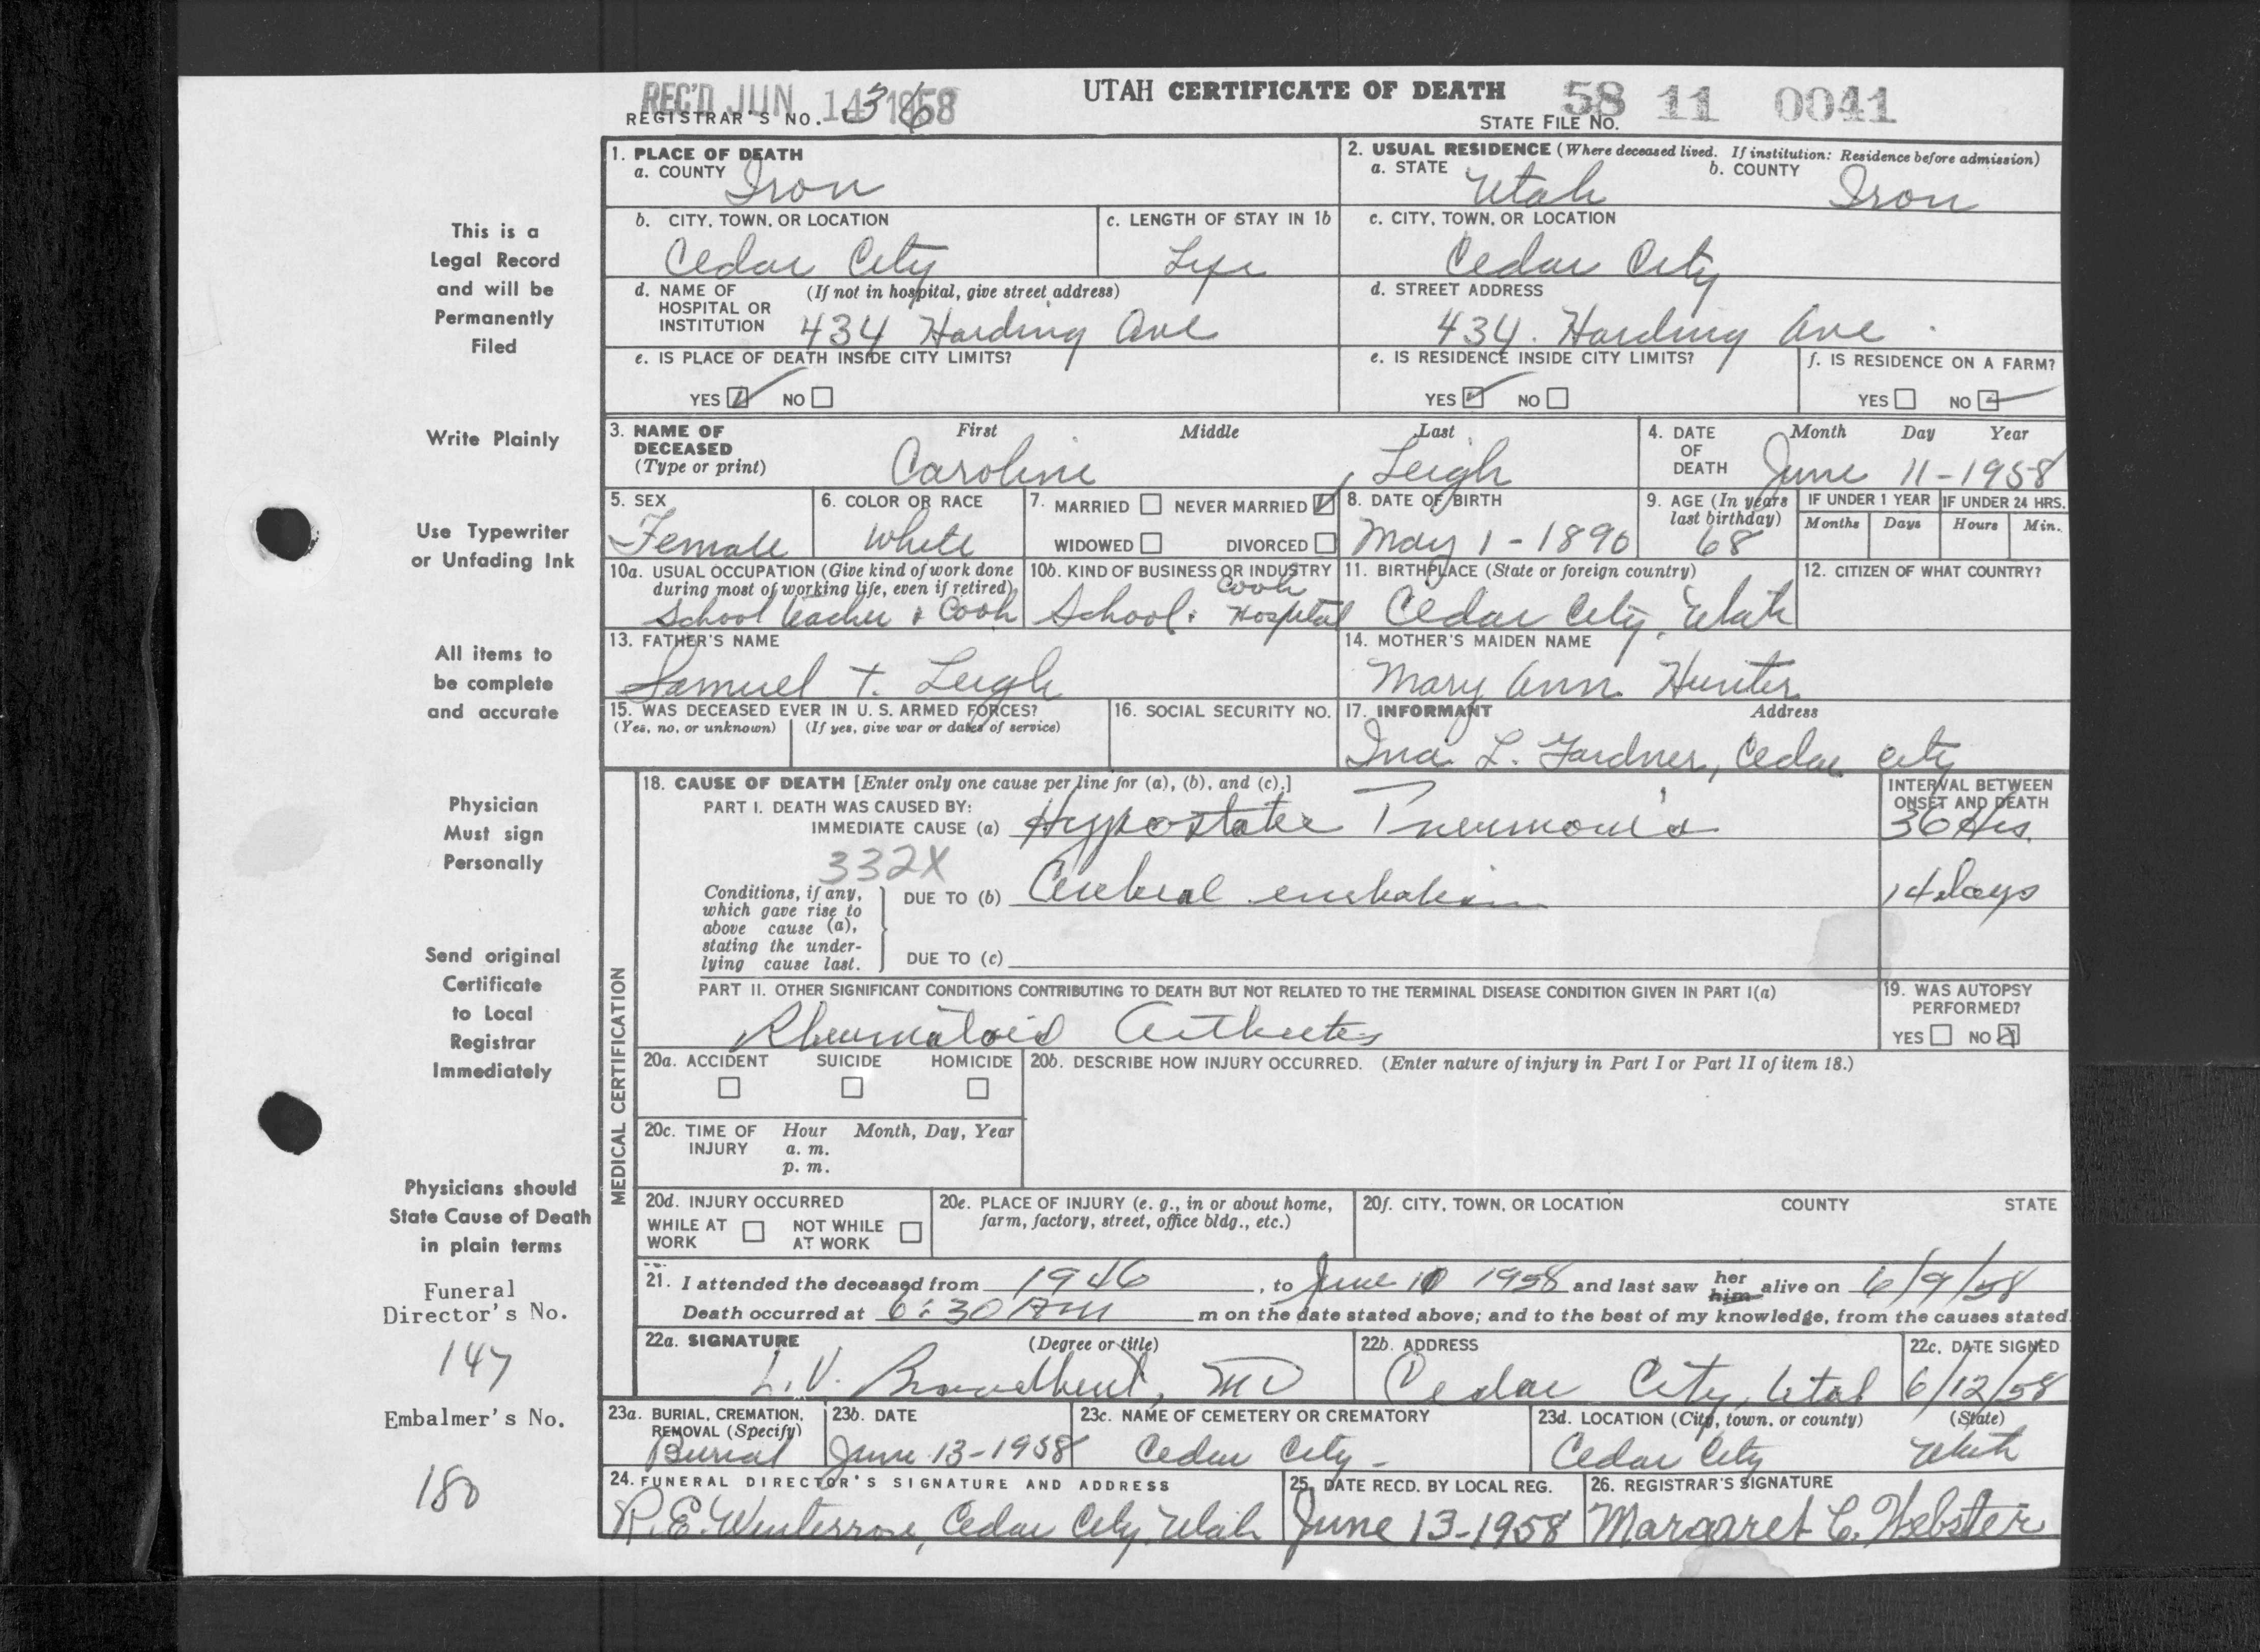 UTAH CERTIFICATE OF DEATH
REC'D JUN 14 1958
REGISTRAR'S NO. 36
STATE FILE NO. 58 11 0041
1. PLACE OF DEATH
a. COUNTY Iron
2. USUAL RESIDENCE (Where deceased lived. If institution: Residence before admission)
a. STATE Utah b. COUNTY Iron
b. CITY, TOWN, OR LOCATION Cedar City
c. LENGTH OF STAY IN 1b Life
c. CITY, TOWN, OR LOCATION Cedar City
d. NAME OF HOSPITAL OR INSTITUTION (If not in hospital, give street address) 434 Harding Ave
d. STREET ADDRESS 434. Harding Ave
e. IS PLACE OF DEATH INSIDE CITY LIMITS?
YES NO
e. IS RESIDENCE INSIDE CITY LIMITS?
YES NO
f. IS RESIDENCE ON A FARM?
YES NO
3. NAME OF DECEASED (Type or print) First Middle Last
Caroline Leigh
4. DATE OF DEATH Month Day Year
June 11-1958
5. SEX Female
6. COLOR OR RACE White
7. MARRIED NEVER MARRIED
WIDOWED DIVORCED
8. DATE OF BIRTH May 1-1890
9. AGE (In years last birthday) 68
IF UNDER 1 YEAR Months Days
IF UNDER 24 HRS. Hours Min.
10a. USUAL OCCUPATION (Give kind of work done during most of working life, even if retired)
School teacher & Cook
10b. KIND OF BUSINESS OR INDUSTRY
School. Cook Hospital
11. BIRTHPLACE (State or foreign country)
Cedar City, Utah
12. CITIZEN OF WHAT COUNTRY?
13. FATHER'S NAME
Samuel T. Leigh
14. MOTHER'S MAIDEN NAME
Mary Ann Hunter
15. WAS DECEASED EVER IN U. S. ARMED FORCES?
(Yes, no, or unknown) (If yes, give war or dates of service)
16. SOCIAL SECURITY NO.
17. INFORMANT Address
Ina L. Gardner, Cedar City
MEDICAL CERTIFICATION
18. CAUSE OF DEATH [Enter only one cause per line for (a), (b), and (c).]
INTERVAL BETWEEN ONSET AND DEATH
PART I. DEATH WAS CAUSED BY:
IMMEDIATE CAUSE (a) Hypostatic Pneumonia 36 Hrs.
332X
Conditions, if any, which gave rise to above cause (a), stating the underlying cause last.
DUE TO (b) Cerebral embolism 14 days
DUE TO (c)
PART II. OTHER SIGNIFICANT CONDITIONS CONTRIBUTING TO DEATH BUT NOT RELATED TO THE TERMINAL DISEASE CONDITION GIVEN IN PART I(a)
Rheumatoid Arthritis
19. WAS AUTOPSY PERFORMED?
YES NO
20a. ACCIDENT SUICIDE HOMICIDE
20b. DESCRIBE HOW INJURY OCCURRED. (Enter nature of injury in Part I or Part II of item 18.)
20c. TIME OF INJURY Hour Month, Day, Year
a. m.
p. m.
20d. INJURY OCCURRED
WHILE AT WORK NOT WHILE AT WORK
20e. PLACE OF INJURY (e. g., in or about home, farm, factory, street, office bldg., etc.)
20f. CITY, TOWN, OR LOCATION COUNTY STATE
21. I attended the deceased from 1946, to June 10 1958 and last saw her him alive on 6/9/58
Death occurred at 6:30 AM m on the date stated above; and to the best of my knowledge, from the causes stated
22a. SIGNATURE (Degree or title)
L. V. Broadbent, MD
22b. ADDRESS
Cedar City, Utah
22c. DATE SIGNED
6/12/58
23a. BURIAL, CREMATION, REMOVAL (Specify)
Burial
23b. DATE
June 13-1958
23c. NAME OF CEMETERY OR CREMATORY
Cedar City
23d. LOCATION (City, town, or county) (State)
Cedar City Utah
24. FUNERAL DIRECTOR'S SIGNATURE AND ADDRESS
R. E. Winterrose, Cedar City, Utah
25. DATE RECD. BY LOCAL REG.
June 13-1958
26. REGISTRAR'S SIGNATURE
Margaret C. Webster
This is a
Legal Record
and will be
Permanently
Filed
Write Plainly
Use Typewriter
or Unfading Ink
All items to
be complete
and accurate
Physician
Must sign
Personally
Send original
Certificate
to Local
Registrar
Immediately
Physicians should
State Cause of Death
in plain terms
Funeral
Director's No.
147
Embalmer's No.
180